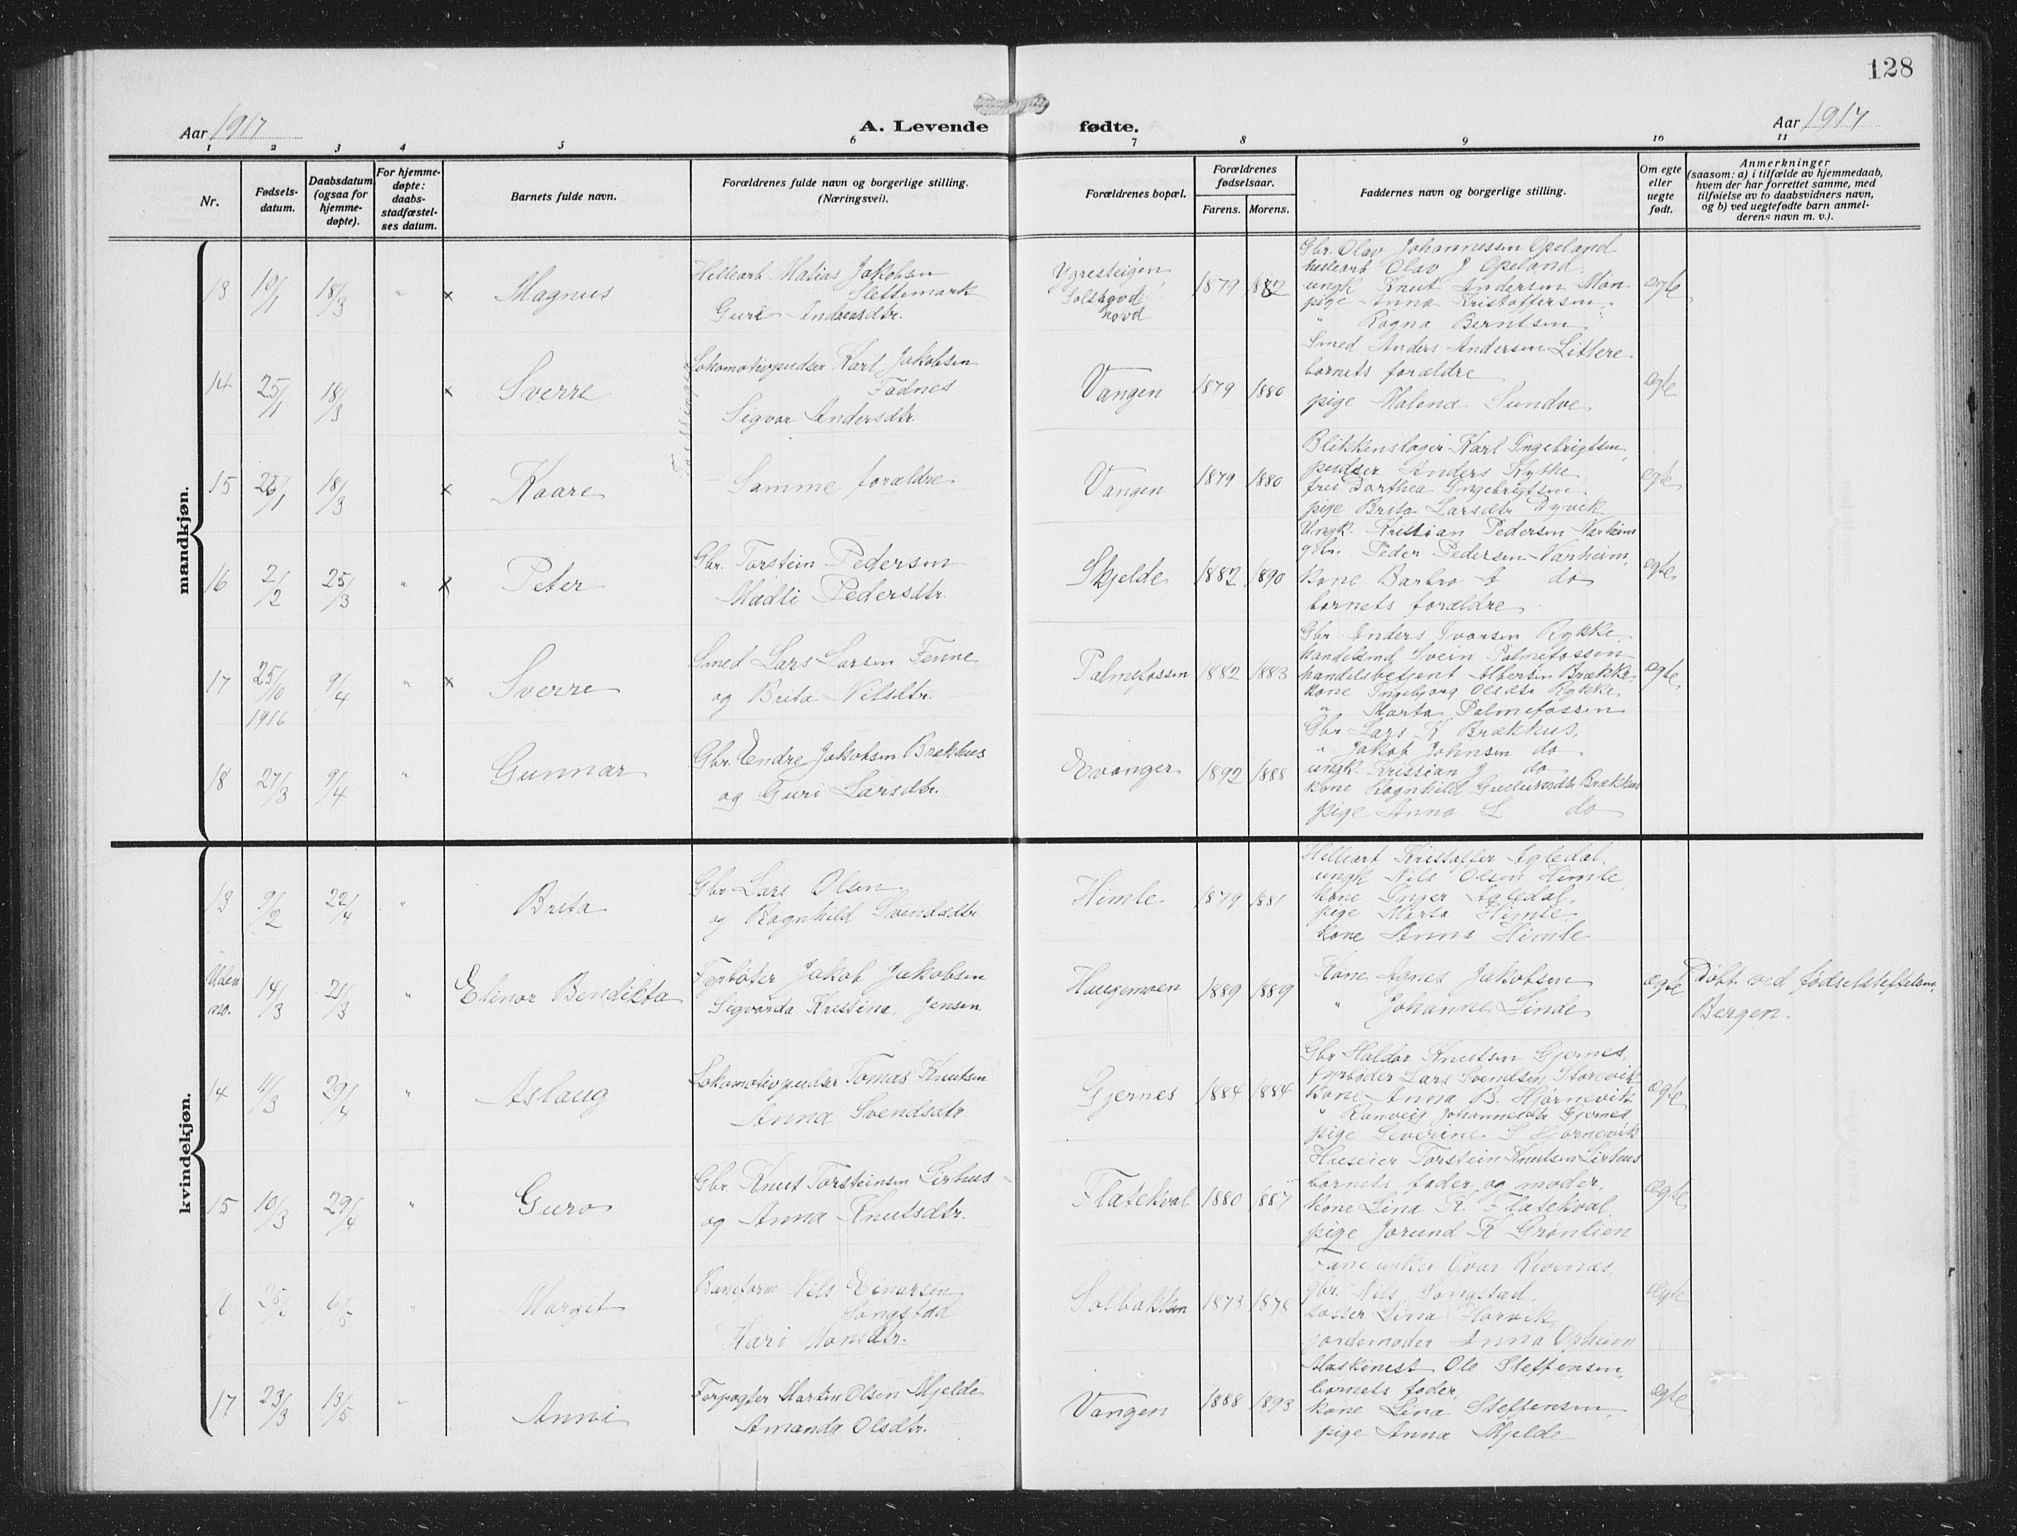 128
Aar 1917
A. Levende fødte.
Aar 1917
1 2 3 4 5 6 7 8 9 10 11
Nr.
Fødsels-
datum.
Daabsdatum
(ogsaa for
hjemme-
døpte).
For hjemme-
døpte:
daabs-
stadfæstel-
ses datum.
Barnets fulde navn.
Forældrenes fulde navn og borgerlige stilling.
(Næringsvei).
Forældrenes bopæl.
Forældrenes
fødselsaar.
Farens. Morens.
Faddernes navn og borgerlige stilling.
Om egte
eller
uegte
født.
Anmerkninger
(saasom: a) i tilfælde av hjemmedaab,
hvem der har forrettet samme, med
tilføielse av to daabsvidners navn,
og b) ved uegtefødte barn anmel-
derens navn m. v.).
mandkjøn.
13 10/1 18/3 " x Magnus
Helleart Matias Jakobsen
Slettemark
Guri Andreasdtr.
1879 1882
Gbr. Olav Johannessen Opeland
helleart Olav J Opeland
ungk Knut Andersen Møn
pige Anna Kristoffersen
" Ragna Berntsen
egte
14 25/1 18/3 x Sverre
Lokomotivpudser Karl Jakobsen
Fadnes
Sigvor Andersdtr.
Vangen 1879 1880
Smed Anders Andersen Litlere
barnets forældre
pige Malena Sundve
egte
15 25/1 18/3 x Kaare
Samme forældre
Vangen 1879 1880
Blikkenslager Karl Ingebrigtsen,
pudser Anders Kythe
fru Dorthea Ingebrigtsen
pige Brita Larsdtr Dyvik
egte
16 2/2 25/3 " x Peter
Gbr. Torstein Pedersen
Madli Pedersdtr.
Skjelde 1882 1890
Ungk. Kristian Pedersen Varheim
gbr. Peder Pedersen Varheim
kone Barbro do
barnets forældre
egte
17 25/10 1916 9/4 " x Sverre
Smed Lars Larsen Fenne
og Brita Nilsdtr.
Palmefossen 1882 1883
Gbr Anders Ivarsen Rykke
handelsmd Svein Palmefossen
handelsbetjent Albertin Brække
kone Ingebjørg Olsdtr Rykke
" Marta Palmefossen
egte
18 27/3 9/4 " Gunnar
Gbr. Endre Jakobsen Brækhus
og Guri Larsdtr.
Evanger 1892 1888
Gbr Lars K Brækhus,
" Jakob Johnsen do
ungk. Kristian J do
kone Ragnhild Gudmundsdtr Brækhus
pige Anna L do
kvindekjøn.
13 9/2 22/4 " Brita
Gbr Lars Olsen
og Ragnhild Svendsdtr
Himle 1879 1881
Helleart Kristoffer Agledal,
ungk Nils Olsen Himle,
kone Inger Agledal,
pige Marta Himle
kone Anna Himle
Uden
no.
14/3 21/3 " Elinor Bendikta
Fyrbøter Jakob Jakobsen
Sigvarda Kristina Jensen
Haugamoen 1889 1889
Kone Agnes Jakobsen
" Johanne Linde
egte
Døbt ved fødselsstiftelsen
Bergen.
14 11/3 29/4 " Aslaug
Lokomotivpudser Tomas Knutsen
Anna Svendsdtr.
Gjernes 1884 1884
Gbr Haldor Knutsen Gjernes,
fyrbøder Lars Svendsen Storevik
kone Anna B. Hjørnevik
" Ranveig Johannesdtr Gjernes
pige Severine S Hjørnevik
egte
15 10/3 29/4 " Guro
Gbr. Knut Torsteinsen Lirhus
og Anna Knutsdtr.
Flatekval 1880 1887
Huseier Torstein Knutsen Lirhus
barnets fader og moder,
kone Lina K. Flatekval,
pige Jorund K Grønlien
egte
6/5 " Marget
Baneform Nils Einarsen
Songstad
Kari Monsdtr.
Solbakken 1873 1878
gbr. Nils Songstad,
Lina Horvik
jordemoder Anna Opheim
egte
17 23/3 13/5 " Anni
Forpagter Martin Olsen Mjelde
Amanda Olsdtr.
Vangen 1888 1893
Maskinist Ole Steffensen,
barnets fader,
kone Lina Steffensen,
pige Anna Mjelde
egte